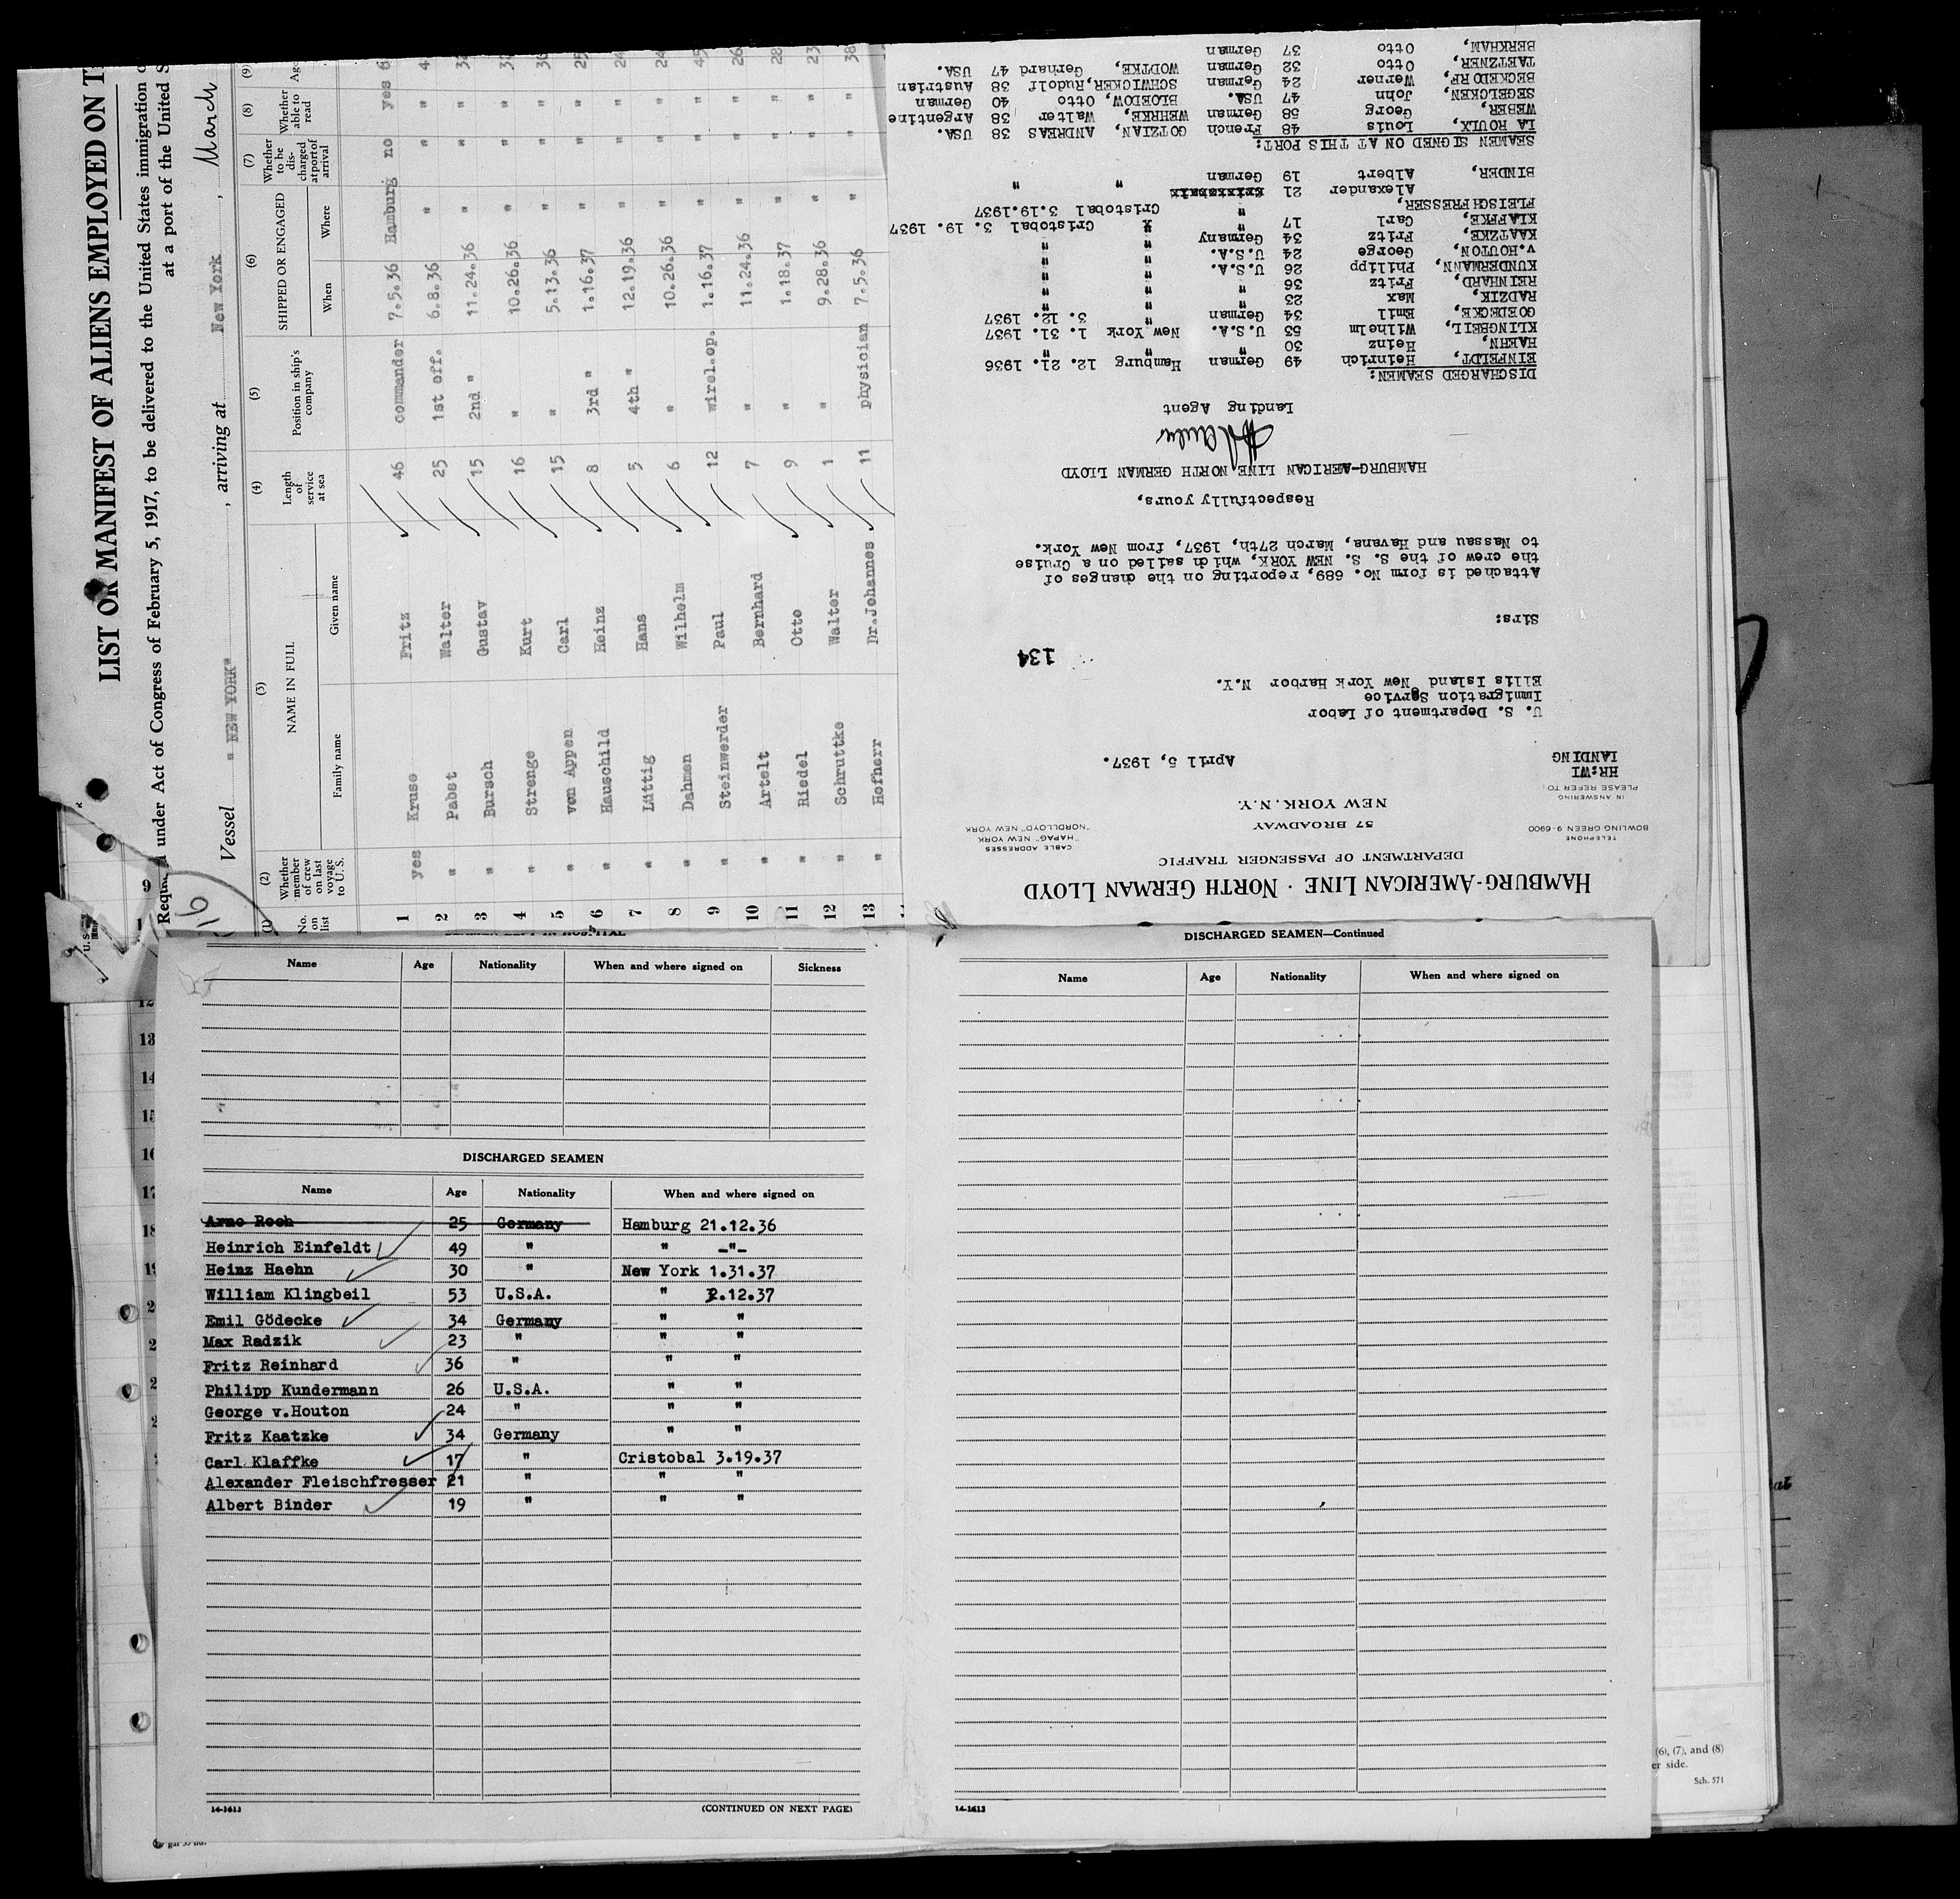 LIST OR MANIFEST OF ALIENS EMPLOYED ON T
under Act of Congress of February 5, 1917, to be delivered to the United States immigration
at a port of the United S
Vessel " NEW YORK" , arriving at New York , March
(1) (2) (3) (4) (5) (6) (7) (8) (9)
No. on list
Whether member of crew on last voyage to U.S.
NAME IN FULL
Family name Given name
Length of service at sea
Position in ship's company
SHIPPED OR ENGAGED
When Where
Whether to be discharged at port of arrival
Whether able to read
Age
1 yes Kruse Fritz 46 commander 7.5.36 Hamburg no yes 6
2 " Pabst Walter 25 1st off. 6.8.36 " " " 4
3 " Bursch Gustav 15 2nd " 11.24.36 " " " 3
4 " Strenge Kurt 16 " 10.26.36 " " " 3
5 " von Appen Carl 15 " 5.13.36 " " " 3
6 " Hauschild Heinz 8 3rd " 1.16.37 " " " 25
7 " Lüttig Hans 5 4th " 12.19.36 " " " 24
8 " Dahmen Wilhelm 6 " 10.26.36 " " " 24
9 " Steinwerder Paul 12 wirel.op. 1.16.37 " " " 45
10 " Artelt Bernhard 7 " 11.24.36 " " " 26
11 " Riedel Otto 9 " 1.18.37 " " " 28
12 " Schruttke Walter 1 " 9.28.36 " " " 23
13 " Hofherr Dr.Johannes 11 physician 7.5.36 " " " 38
HAMBURG-AMERICAN LINE · NORTH GERMAN LLOYD
DEPARTMENT OF PASSENGER TRAFFIC
57 BROADWAY
NEW YORK, N.Y.
TELEPHONE
BOWLING GREEN 9-6900
CABLE ADDRESSES
"HAPAG" NEW YORK
"NORDLLOYD" NEW YORK
IN ANSWERING
PLEASE REFER TO:
HR:WI
LANDING
April 5, 1937.
U. S. Department of Labor
Immigration Service
Ellis Island New York Harbor N.Y.
134
Sirs:
Attached is form No. 689, reporting on the changes of
the crew of the S. S. NEW YORK, which sailed on a Cruise
to Nassau and Havana, March 27th, 1937, from New York.
Respectfully yours,
HAMBURG-AMERICAN LINE NORTH GERMAN LLOYD
Landing Agent
DISCHARGED SEAMEN:
EINFELDT, Heinrich 49 German Hamburg 12. 21. 1936
HAEHN, Heinz 30 " " "
KLINGBEIL, Wilhelm 53 U.S.A. New York 1. 31. 1937
GOEDECKE, Emil 34 German " 3. 12. 1937
RADZIK, Max 23 " "
REINHARD, Fritz 36 " "
KUNDERMANN, Philipp 26 U.S.A. "
v.HOUTON, George 24 U.S.A. "
KAATZKE, Fritz 34 Germany "
KLAFFKE, Carl 17 " Cristobal 3. 19. 1937
FLEISCHFRESSER, Cristobal 3.19.1937
Alexander 21
BINDER, Albert 19 German " "
SEAMEN SIGNED ON AT THIS PORT:
LA ROULX, Louis 48 French GOTZIAN, ANDREAS 38 USA.
WEBER, Georg 58 German WEHRKE, Walter 38 Argentine
SEGELCKEN, John 47 USA. BLOEDOW, Otto 40 German
BECKEDORF, Werner 24 German SCHWICKER,Rudolf 38 Austrian
TAETZNER, Otto 32 German WODTKE, Gerhard 47 USA.
BERKHAM, Otto 37 German
SEAMEN LEFT IN HOSPITAL
Name Age Nationality When and where signed on Sickness
DISCHARGED SEAMEN
Name Age Nationality When and where signed on
Arno Roch 25 Germany Hamburg 21.12.36
Heinrich Einfeldt 49 " " -"-
Heinz Haehn 30 " New York 1.31.37
William Klingbeil 53 U.S.A. " 2.12.37
Emil Gödecke 34 Germany " "
Max Radzik 23 " " "
Fritz Reinhard 36 " " "
Philipp Kundermann 26 U.S.A. " "
George v.Houton 24 " " "
Fritz Kaatzke 34 Germany " "
Carl Klaffke 17 " Cristobal 3.19.37
Alexander Fleischfresser 21 " " "
Albert Binder 19 " " "
14-1613 (CONTINUED ON NEXT PAGE)
DISCHARGED SEAMEN—Continued
Name Age Nationality When and where signed on
14-1613
(6), (7), and (8)
er side.
Sch. 571